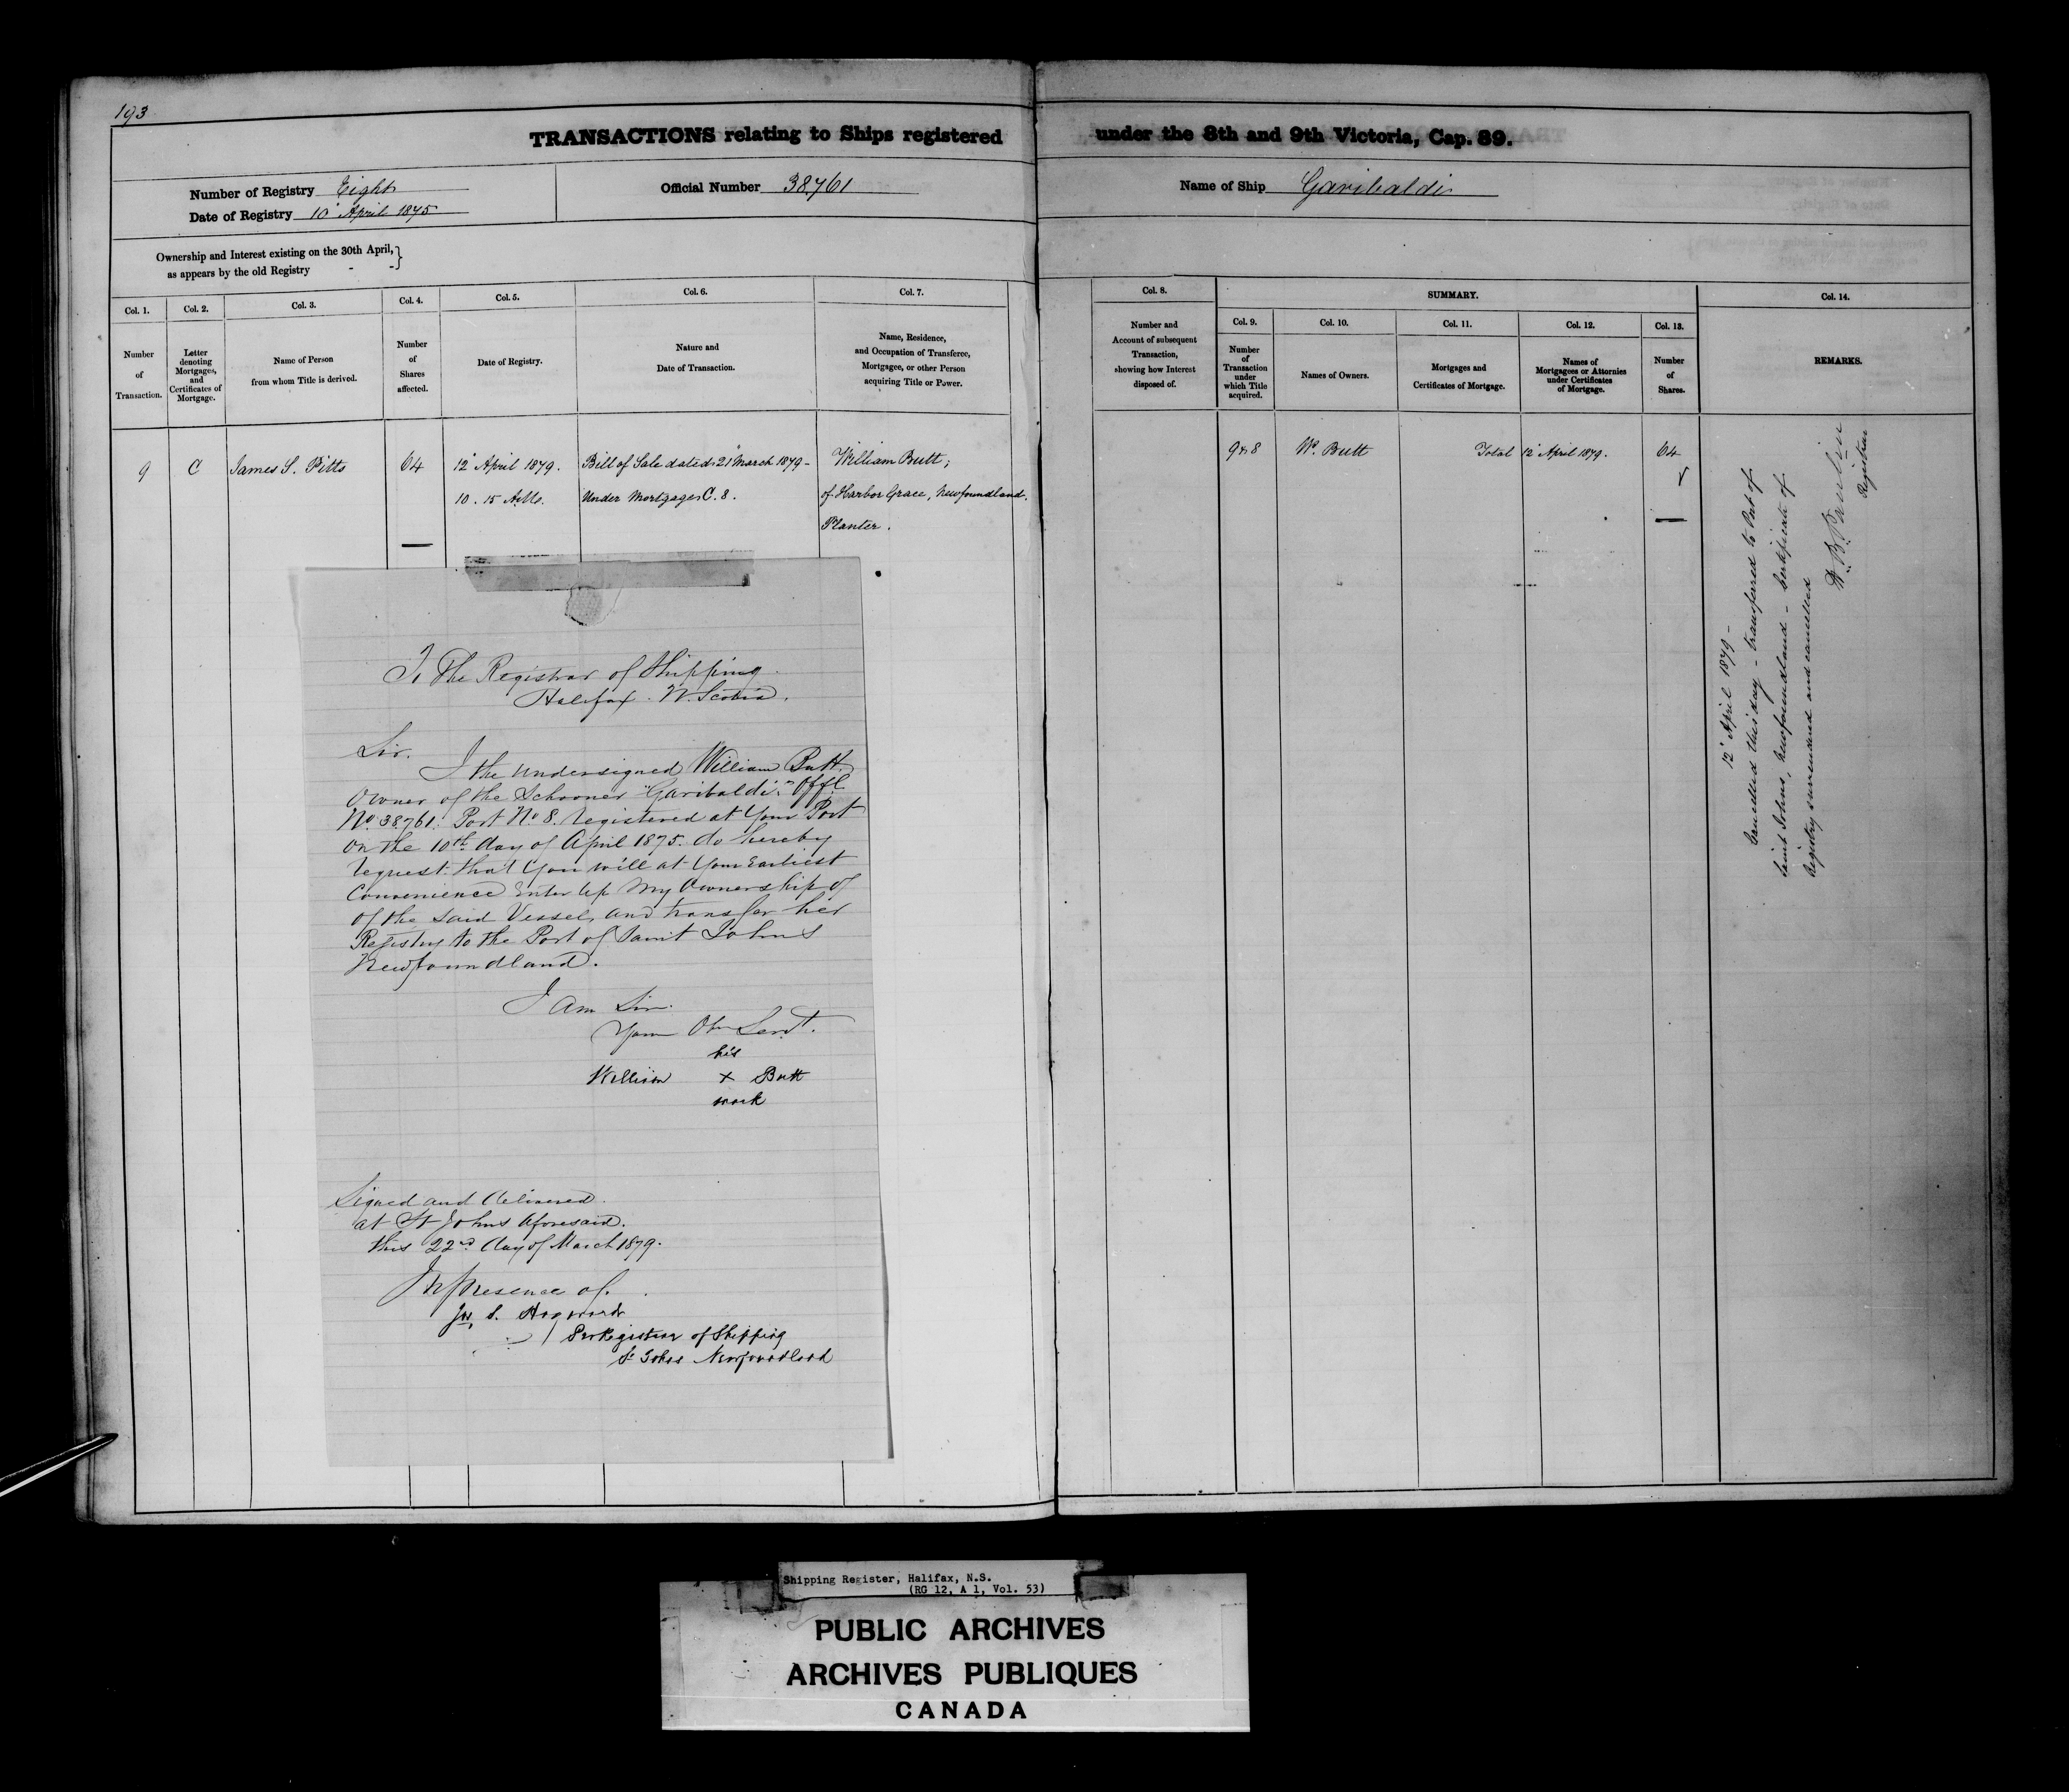 193
TRANSACTIONS relating to Ships registered under the 8th and 9th Victoria, Cap. 89.
Number of Registry Eight
Date of Registry 10 April 1875
Official Number 38.761
Name of Ship Garibaldi
Ownership and Interest existing on the 30th April,
as appears by the old Registry
Col. 1.
Number
of
Transaction.
Col. 2.
Letter
denoting
Mortgages,
and
Certificates of
Mortgage.
Col. 3.
Name of Person
from whom Title is derived.
Col. 4.
Number
of
Shares
affected.
Col. 5.
Date of Registry.
Col. 6.
Nature and
Date of Transaction.
Col. 7.
Name, Residence,
and Occupation of Transferee,
Mortgagee, or other Person
acquiring Title or Power.
Col. 8.
Number and
Account of subsequent
Transaction,
showing how Interest
disposed of.
SUMMARY.
Col. 9.
Number
of
Transaction
under
which Title
acquired.
Col. 10.
Names of Owners.
Col. 11.
Mortgages and
Certificates of Mortgage.
Col. 12.
Names of
Mortgagees or Attornies
under Certificates
of Mortgage.
Col. 13.
Number
of
Shares.
Col. 14.
REMARKS.
9
C
James S. Pitts
64
12 April 1879.
10.15 A.M.
Bill of Sale dated 21 March 1879 -
Under Mortgage C. 8.
William Butt,
of Harbor Grace, Newfoundland.
Planter.
9 & 8
Wm. Butt
Total 12 April 1879.
64
12 April 1879 -
Cancelled this day - transferred to Port of
Saint Johns, Newfoundland - Certificate of
Registry surrendered and cancelled
Registrar
To The Registrar of Shipping
Halifax. N. Scotia.
Sir.
I the undersigned William Butt
Owner of the Schooner "Garibaldi." Offl.
No. 38.761. Port No. 8. Registered at Your Port
on the 10th day of April 1875. do hereby
request that You will at Your Earliest
Convenience Enter up My Ownership of
of the said Vessel, and transfer her
Registry to the Port of Saint Johns
Newfoundland.
I am Sir.
Your Obn Servt.
his
William x Butt
mark
Signed and delivered
at St Johns Aforesaid.
this 22nd day of March 1879.
In presence of.
Registrar of Shipping
St Johns Newfoundland
Shipping Register, Halifax, N.S.
(RG 12, A 1, Vol. 53)
PUBLIC ARCHIVES
ARCHIVES PUBLIQUES
CANADA